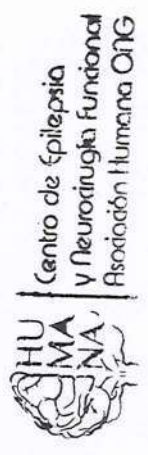 HU
MA
NA
Centro de Epilepsia
y Neurocirugía Funcional
Asociación Humana ONG